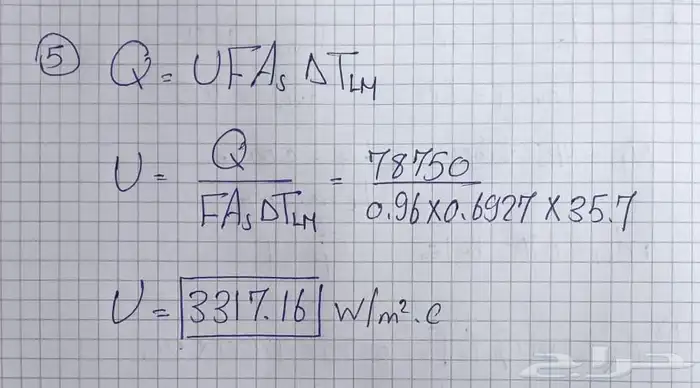 5 Q = UFAs ΔTLM
U = Q / FAs ΔTLM = 78750 / 0.96 × 0.6927 × 35.7
U = 3317.16 W/m².C
حراج